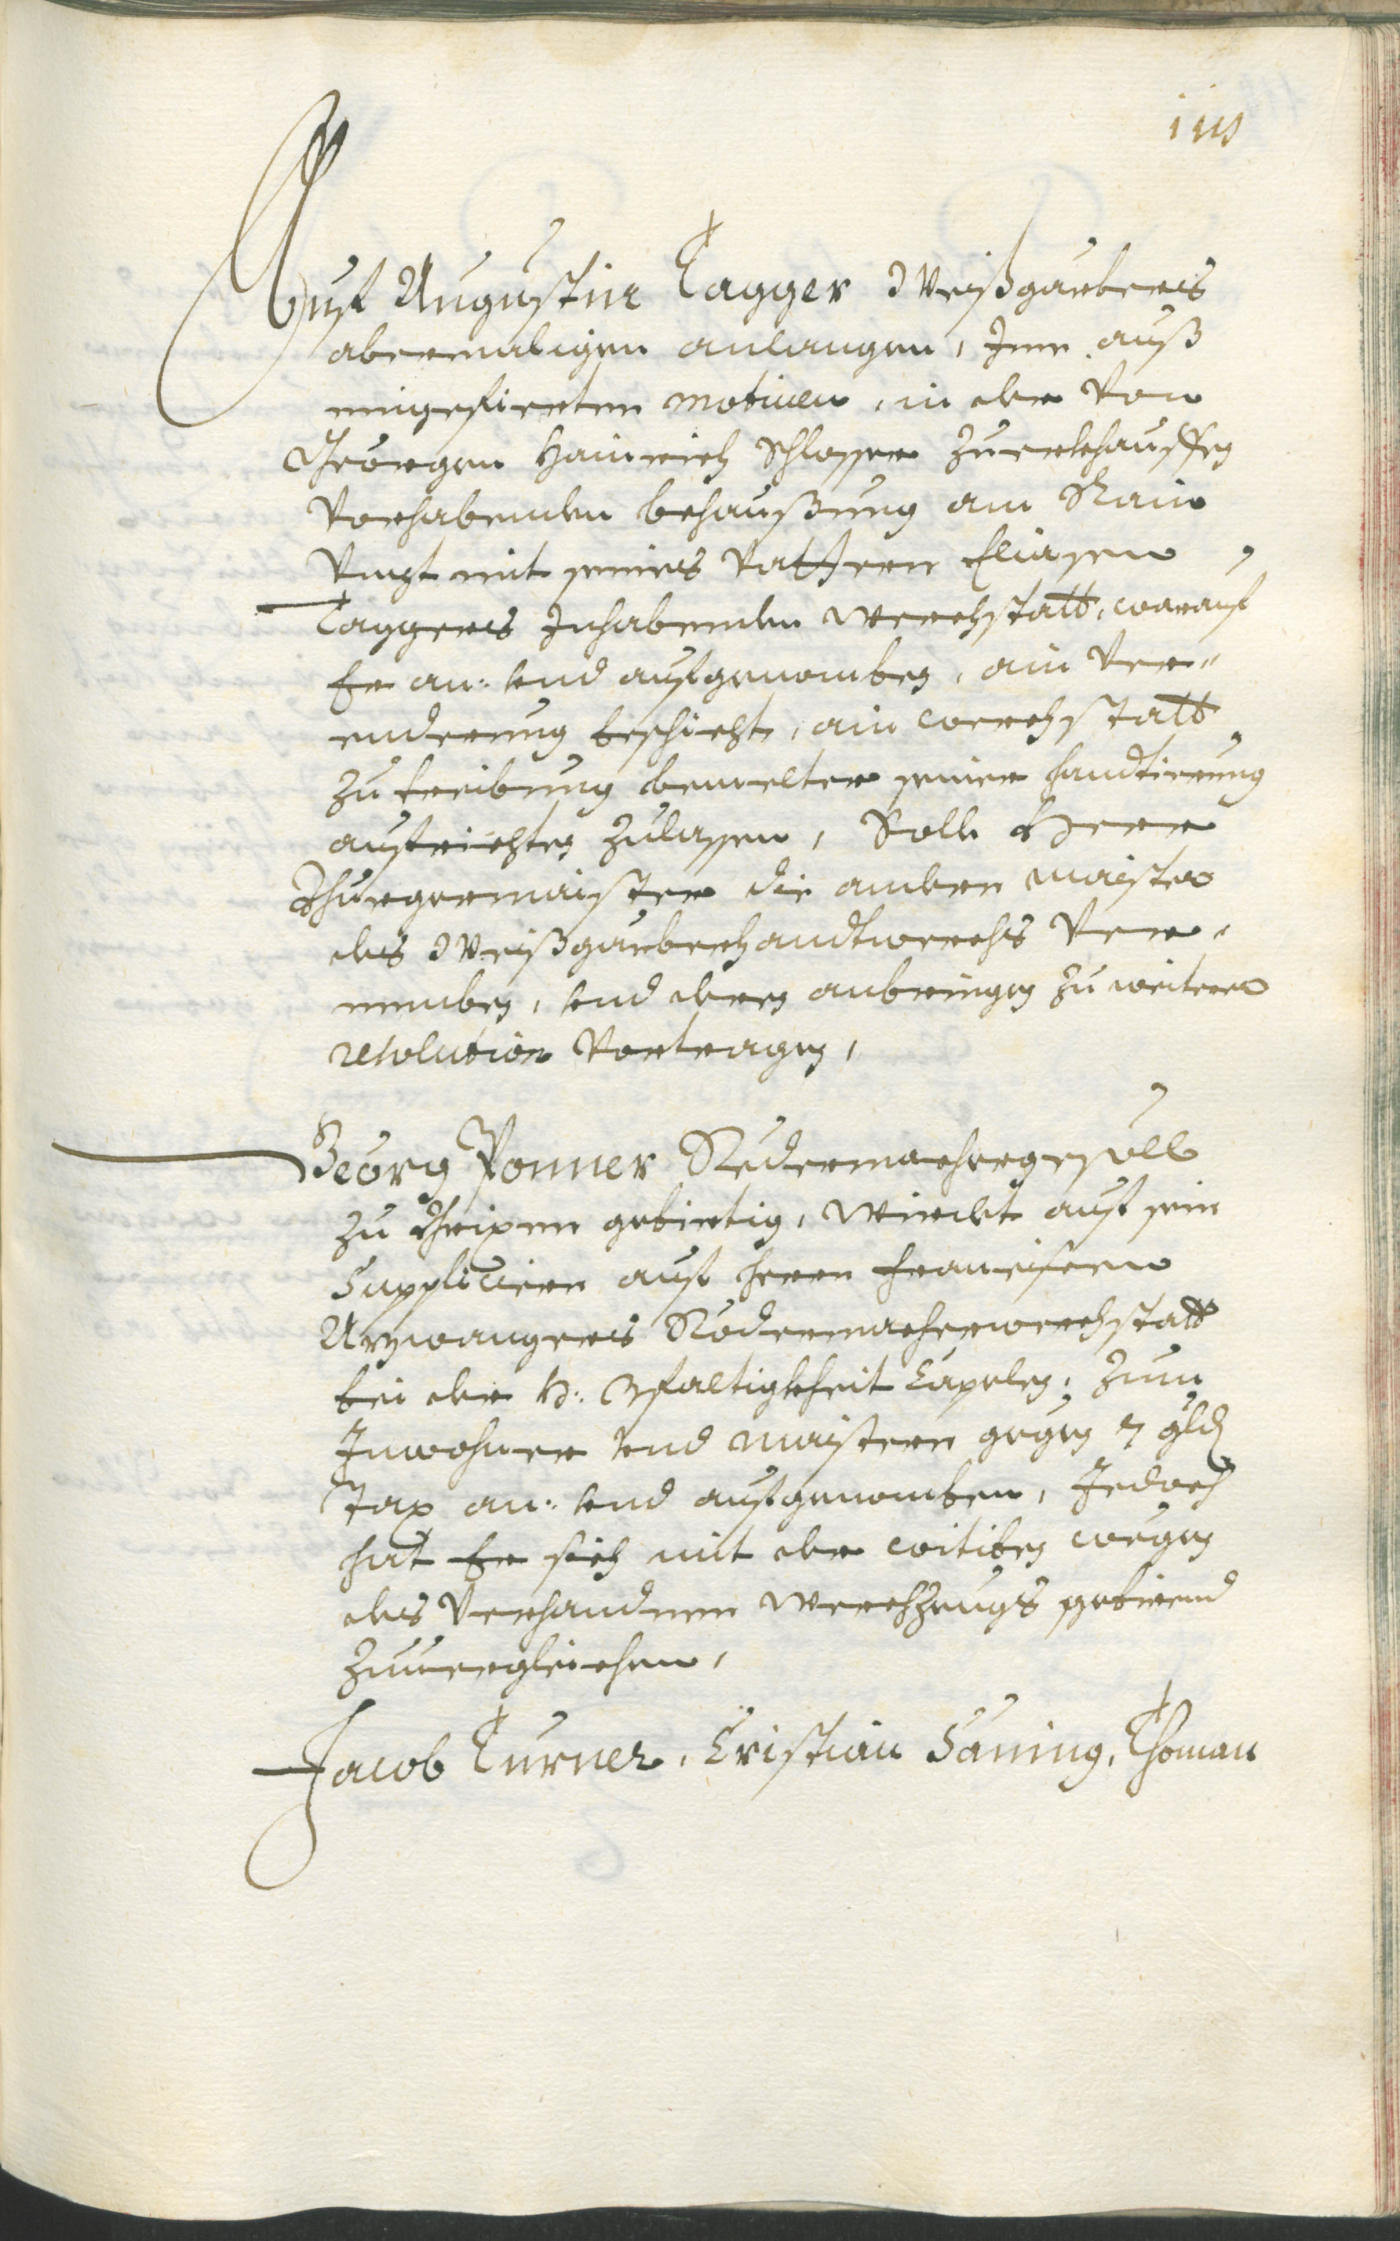 Auf Augustin Tagger Weißgärbers
abermaligen anlangen, Ime auß
eingefierten motiuen, in der von
Geörgen Hainrich Schlosser zuerkhauffen
vorhabenden behaußung am Rain
vnzt mit seines Vattern Eliasen
Taggers Inhabenden werchstatt, warauf
Er an: vnd aufgenomben, ain ver-
enderung beschicht, ain werchstatt
zu treibung bemelter seiner handtierung
aufrichten zulassen, Solle Herr
Burgermaister die andern maister
des Weißgärberhandtwerchs ver-
nemben, vnd deren anbringen zu weiterer
resolution vortragen,
Geörg Ponner Rädermachergesöll
zu Brixen gebirtig, wirdet auf sein
Supplicirn auf Herrn Franciscen
Rädermacherwerchstatt
bei der H: 3faltigkheit Capelen, zum
Inwohner vnd maistern gegen 7 gld
Tax an: vnd aufgenomben, Jedoch
hat Er sich mit der witiben wegen
des verhandnen werchzeugs gebirend
zuuergleichen,
Jacob Turner, Cristian Säning, Thoman